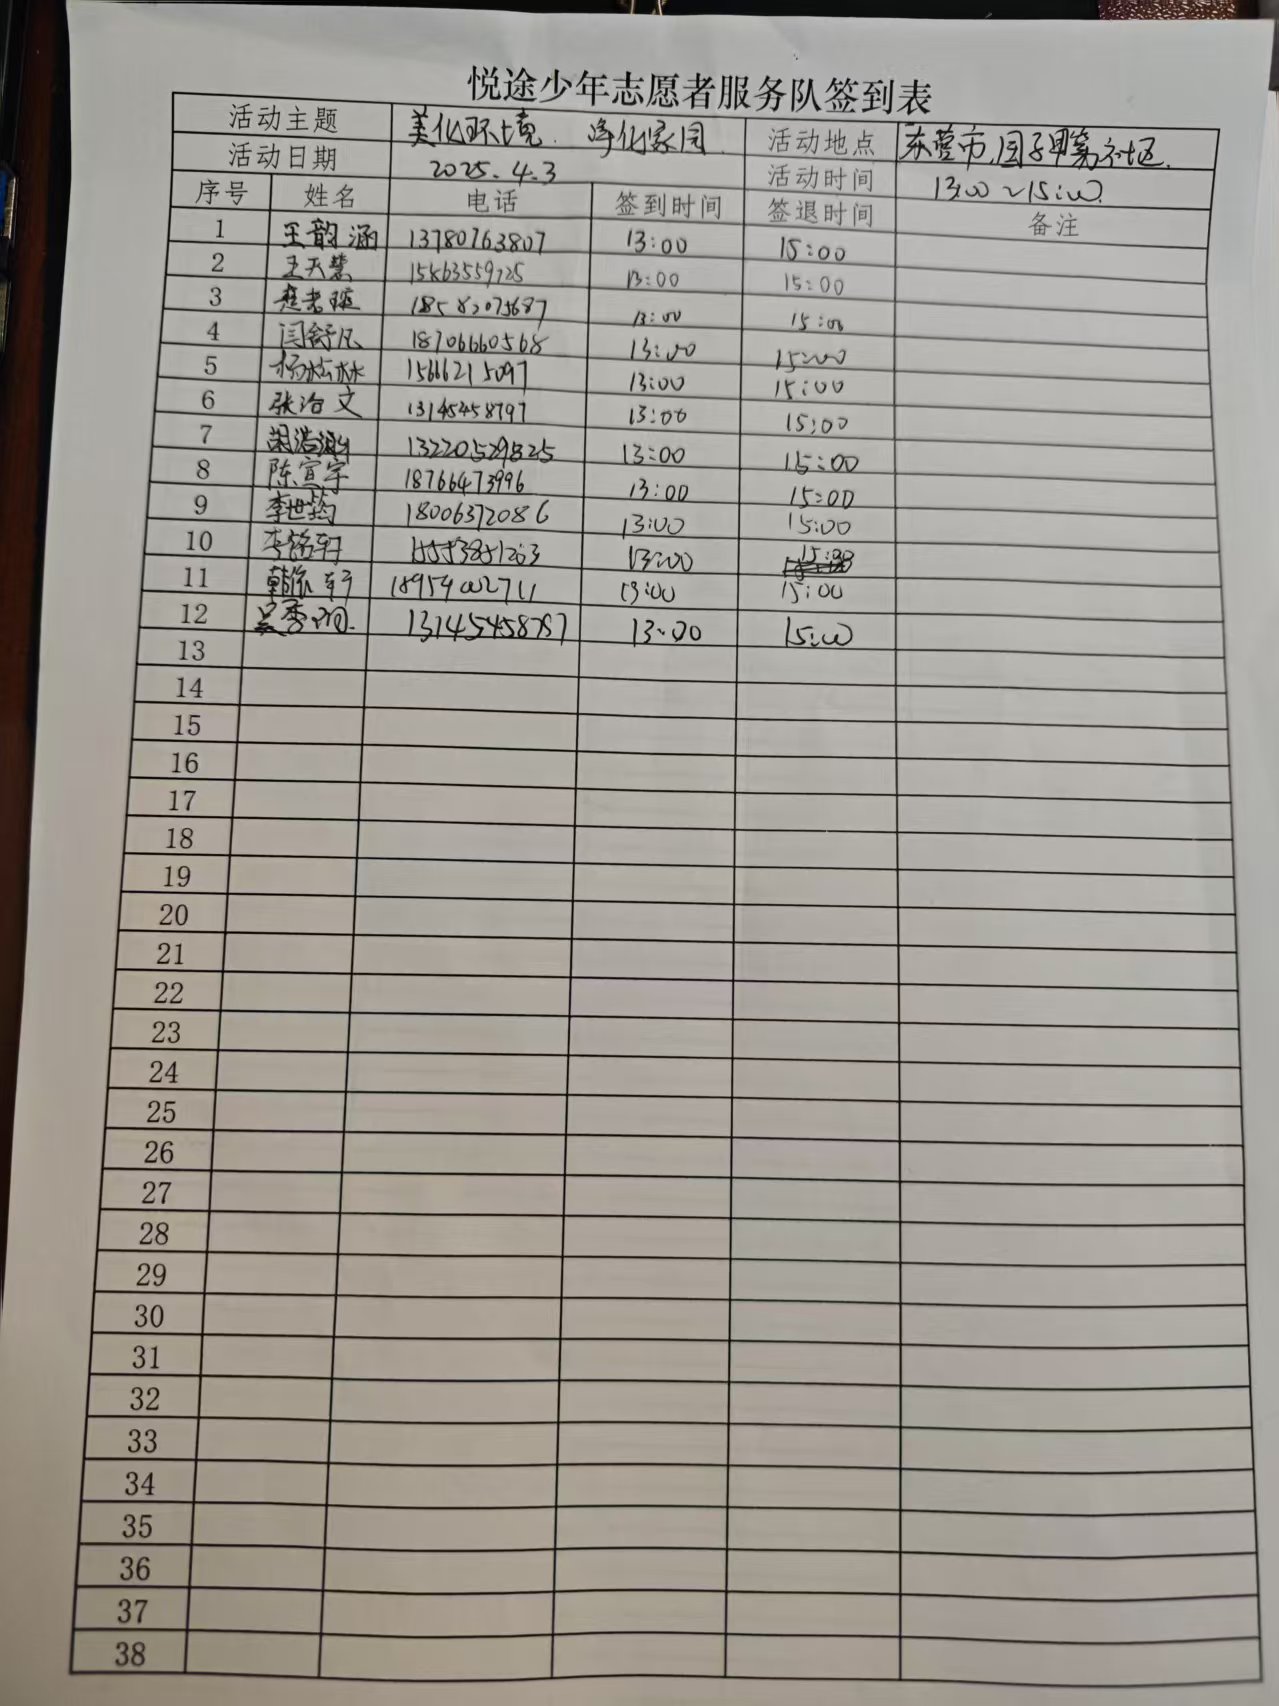 悦途少年志愿者服务队签到表
活动主题 美化环境. 净化家园 活动地点 东营市,园子里第社区.
活动日期 2025.4.3 活动时间 13:00~15:00
序号 姓名 电话 签到时间 签退时间 备注
1 王韵涵 13780763807 13:00 15:00
2 王天慧 13:00 15:00
3 13:00 15:00
4 闫舒凡 18706660568 13:00 15:00
5 杨松林 15666215097 13:00 15:00
6 张治文 13145458797 13:00 15:00
7 13220529825 13:00 15:00
8 陈宣宇 18766473996 13:00 15:00
9 李世筠 18006372086 13:00 15:00
10 李铭轩 13:00
11 韩依轩 18954002711 13:00 15:00
12 13145458797 13:00 15:00
13
14
15
16
17
18
19
20
21
22
23
24
25
26
27
28
29
30
31
32
33
34
35
36
37
38